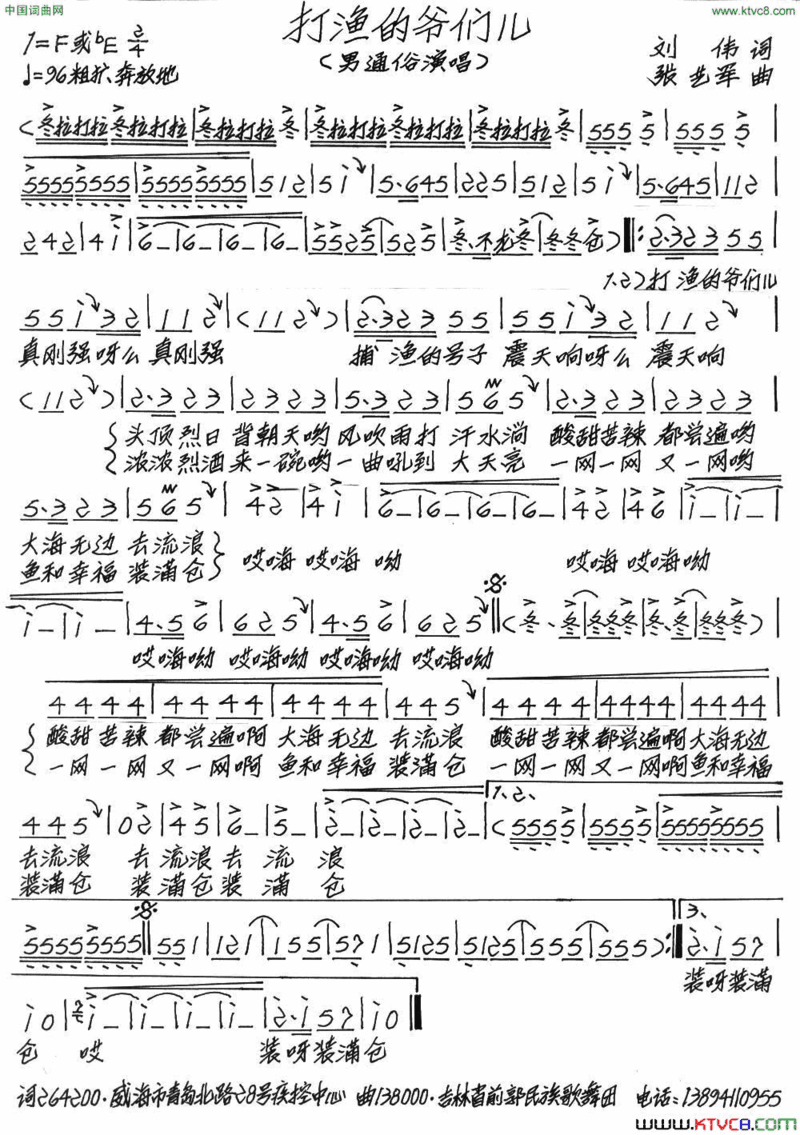 中国词曲网
www.ktvc8.com
打渔的爷们儿
1=F或ᵇE 2/4
(男通俗演唱)
刘 伟 词
♩=96粗犷、奔放地
张艺军 曲
(冬拉打拉冬拉打拉|冬拉打拉冬|冬拉打拉冬拉打拉|冬拉打拉冬|555 5|555 5|
55555555|55555555|512|5i|5·645|225|512|5i|5·645|112|
242|4i|6-|6-|6-|6-|55225|525|冬、不龙冬|冬冬仓):‖2·323 55|
1.2.打 渔的爷们儿
55i32|112|(112)|2·323 55|55i32|112|
真刚强呀么 真刚强 捕 渔的号子 震天响呀么 震天响
(112)|2·323|2323|5·323|565|2·323|2323|
头顶烈日 背朝天哟 风吹雨打 汗水淌 酸甜苦辣 都尝遍哟
浓浓烈酒 来一碗哟 一曲吼到 大天亮 一网一网 又一网哟
5·323|565|42|4i|6-|6-|6-|6-|42|46|i-|i-|
大海无边 去流浪 哎嗨 哎嗨 呦 哎嗨 哎嗨呦
鱼和幸福 装满仓
i-|i-|4·56|625|4·56|625‖(冬、冬|冬冬冬|冬、冬|冬冬冬)|
哎嗨呦 哎嗨呦 哎嗨呦 哎嗨呦
4444|4444|4444|445|4444|4444|4444|4444|
酸甜苦辣 都尝遍啊 大海无边 去流浪 酸甜苦辣 都尝遍啊 大海无边
一网一网 又一网啊 鱼和幸福 装满仓 一网一网 又一网啊 鱼和幸福
1.2.
445|02|45|6-|5-|2-|2-|2-|2-|(5555 5|5555 5|55555555|
去流浪 去流浪 去 流 浪
装满仓 装满仓 装 满 仓
3.
55555555‖551|121|155|571|5125|5125|555|555):‖2·i57|
装呀装满
i0|i-|i-|i-|i-|2·i57|i0‖
仓 哎 装呀装满仓
词264200·威海市青岛北路28号疾控中心 曲138000·吉林省前郭民族歌舞团 电话:13894110955
www.KTVC8.com